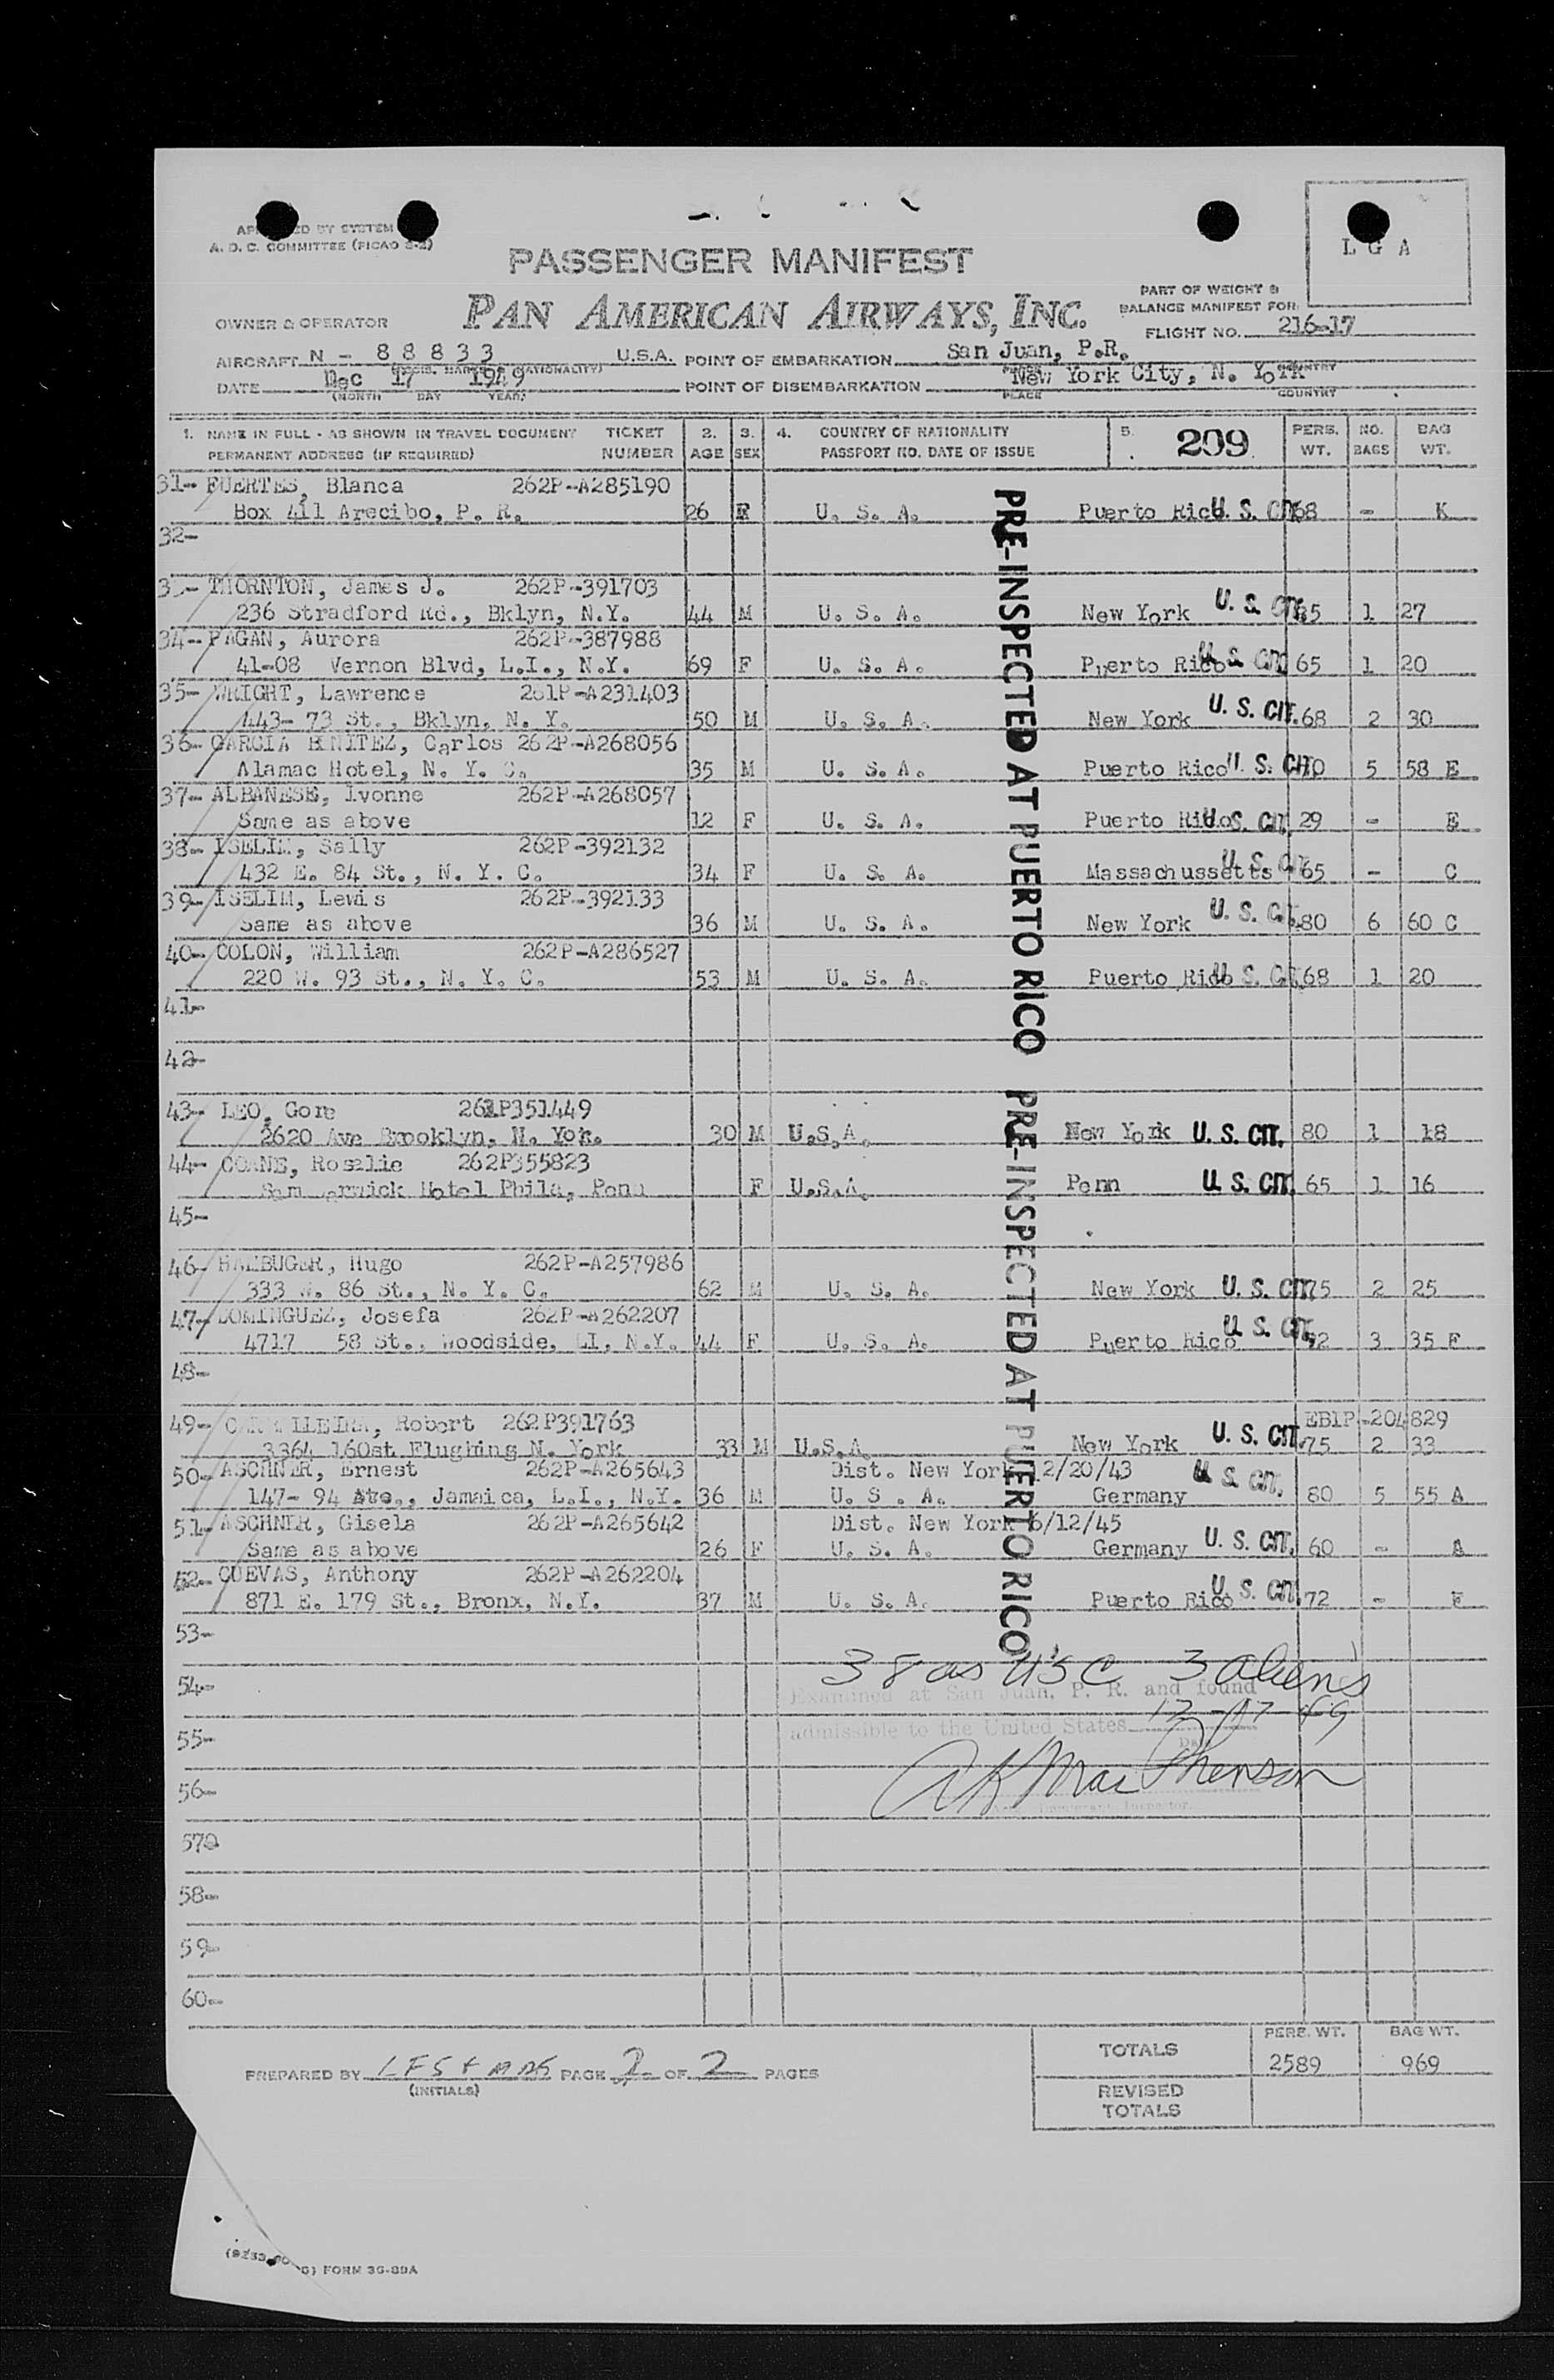 A. D. C. COMMITTEE (PICAO 2-2)
L G A
PASSENGER MANIFEST
PAN AMERICAN AIRWAYS, INC.
PART OF WEIGHT &
BALANCE MANIFEST FOR:
FLIGHT NO. 216-17
OWNER & OPERATOR
AIRCRAFT N - 88833 U.S.A. POINT OF EMBARKATION San Juan, P.R.
DATE Dec 17 1949 POINT OF DISEMBARKATION New York City, N. York
(MONTH DAY YEAR) PLACE COUNTRY
1. NAME IN FULL - AS SHOWN IN TRAVEL DOCUMENT TICKET 2. 3. 4. COUNTRY OF NATIONALITY 5. 209 PERS. NO. BAG
PERMANENT ADDRESS (IF REQUIRED) NUMBER AGE SEX PASSPORT NO. DATE OF ISSUE WT. BAGS WT.
31- FUERTES, Blanca 262P-A285190
Box 411 Arecibo, P. R. 26 F U. S. A. Puerto Rico U. S. CIT. 68 - K
32-
THORNTON, James J. 262P-391703
236 Stradford Rd., Bklyn, N.Y. 44 M U. S. A. New York U. S. CIT. 1 27
34- PAGAN, Aurora 262P-387988
41-08 Vernon Blvd, L.I., N.Y. 69 F U. S. A. Puerto Rico U. S. CIT. 65 1 20
35- WRIGHT, Lawrence 261P-A231403
443- 73 St., Bklyn, N. Y. 50 M U. S. A. New York U. S. CIT. 68 2 30
36- GARCIA BENITEZ, Carlos 262P-A268056
Alamac Hotel, N. Y. C. 35 M U. S. A. Puerto Rico U. S. CIT. 5 58 E
37- ALBANESE, Ivonne 262P-A268057
Same as above 12 F U. S. A. Puerto Rico U. S. CIT. 29 - E
38- ISELIN, Sally 262P-392132
432 E. 84 St., N. Y. C. 34 F U. S. A. Massachussetts U. S. CIT. 65 - C
39- ISELIN, Lewis 262P-392133
Same as above 36 M U. S. A. New York U. S. CIT. 80 6 60 C
40- COLON, William 262P-A286527
220 W. 93 St., N. Y. C. 53 M U. S. A. Puerto Rico U. S. CIT. 68 1 20
41-
42-
43- LEO, Gore 262P351449
2620 Ave Brooklyn, N. Yok. 30 M U.S.A. New York U. S. CIT. 80 1 18
44- COANE, Rosalie 262P355823
Hotel Phila, Penn F U.S.A. Penn U. S. CIT. 65 1 16
45-
46- HAMBUGER, Hugo 262P-A257986
333 W. 86 St., N. Y. C. 62 M U. S. A. New York U. S. CIT. 75 2 25
47- DOMINGUEZ, Josefa 262P-A262207
4717 58 St., Woodside, LI, N.Y. 44 F U. S. A. Puerto Rico U. S. CIT. 3 35 F
48-
49- Robert 262P391763 EB1P-204829
3364 160st Flughing N. York 33 M U.S.A. New York U. S. CIT. 75 2 33
50- ASCHNER, Ernest 262P-A265643 Dist. New York 2/20/43
147- 94 Ave., Jamaica, L.I., N.Y. 36 M U. S. A. Germany U. S. CIT. 80 5 55 A
51- ASCHNER, Gisela 262P-A265642 Dist. New York 6/12/45
Same as above 26 F U. S. A. Germany U. S. CIT. 60 - A
52- CUEVAS, Anthony 262P-A262204
871 E. 179 St., Bronx, N.Y. 37 M U. S. A. Puerto Rico U. S. CIT. 72 - F
PRE-INSPECTED AT PUERTO RICO
PRE-INSPECTED AT PUERTO RICO
53-
38 as USC 3 Aliens
54-
Examined at San Juan, P. R. and found
admissible to the United States 12-17-49
55-
A K MacPherson
56-
Immigrant Inspector.
57-
58-
59-
60-
TOTALS PERS. WT. 2589 BAG WT. 969
PREPARED BY (INITIALS) PAGE 2 OF 2 PAGES
REVISED
TOTALS
FORM 36-89A